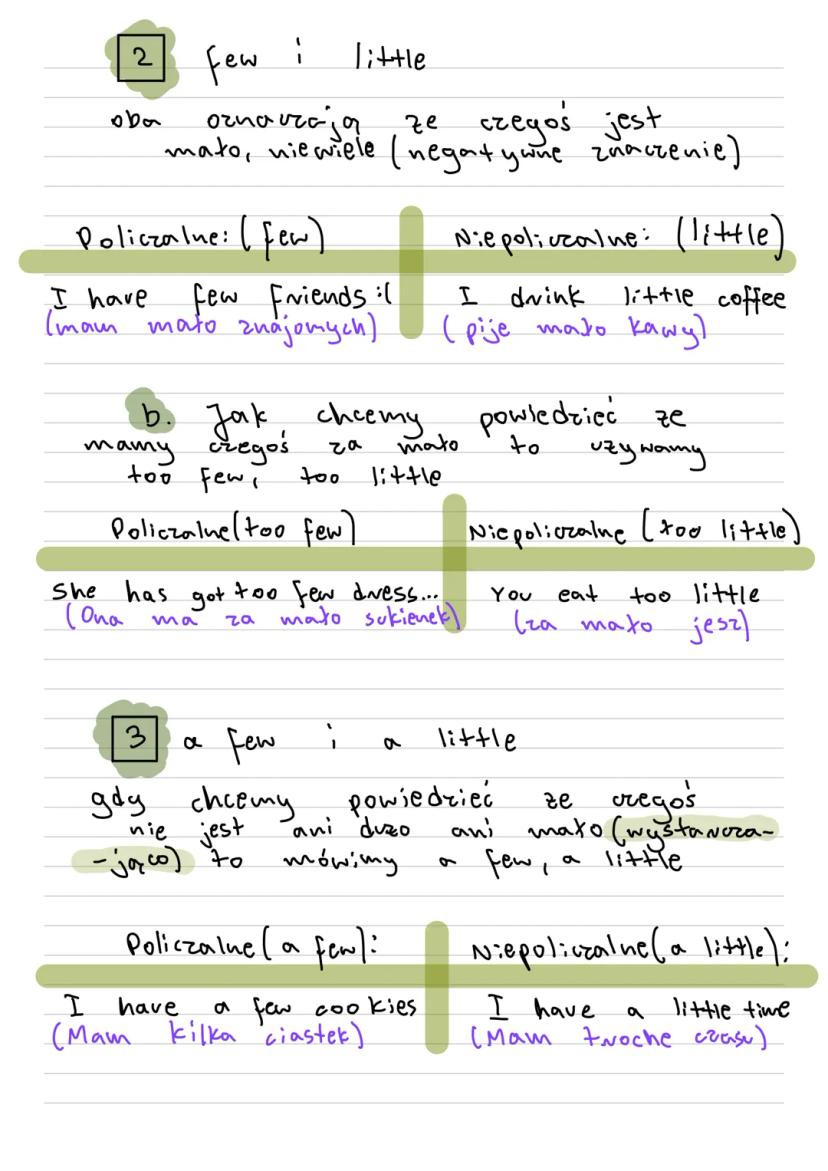 2 few i little
oba oznaczają ze czegoś jest
mało, niewiele (negatywne znaczenie)
Policzalne: (few)
Niepoliczalne: (little)
I have few Friends :(
I drink little coffee
(mam mało znajomych)
(pije mało kawy)
b. Jak chcemy powiedzieć ze
mamy czegoś za mało to uzywamy
too few, too little
Policzalne (too few)
Niepoliczalne (too little)
She has got too few dress...
You eat too little
(Ona ma za mało sukienek)
(za mało jesz)
3 a few i a little
gdy chcemy powiedzieć ze czegoś
nie jest ani duzo ani mało (wystarcza-
-jąco) to mówimy a few, a little
Policzalne (a few):
Niepoliczalne (a little):
I have a few cookies
I have a little time
(Mam kilka ciastek)
(Mam troche czasu)